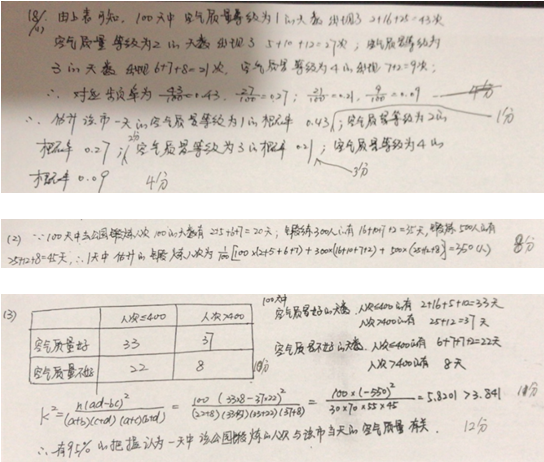 18. (1) 由上表可知，100天中空气质量等级为1的天数出现了2+16+25=43次
空气质量等级为2的天数出现了5+10+12=27次；空气质量等级为
3的天数出现6+7+8=21次，空气质量等级为4的出现7+2=9次；
∴对应频率为 43/100=0.43, 27/100=0.27; 21/100=0.21, 9/100=0.09 4分
∴估计该市一天的空气质量等级为1的概率 0.43；空气质量等级为2的 1分
概率 0.27；2分 空气质量等级为3的概率 0.21；空气质量等级为4的 3分
概率 0.09 4分
(2) ∵100天中去公园锻炼人次100的天数有2+5+6+7=20天；锻炼300人的有16+10+7+2=35天，锻炼500人的有
25+12+8=45天，∴1天中估计的锻炼人次为 1/100[100×(2+5+6+7)+300×(16+10+7+2)+500×(25+12+8)]=350(人) 8分
(3) 人次≤400 人次>400
空气质量好 33 37
空气质量不好 22 8 10分
100天中
空气质量好的天数，人次≤400的有 2+16+5+10=33天
人次>400的有 25+12=37天
空气质量不好的天数，人次≤400的有 6+7+7+2=22天
人次>400的有 8天
K²=n(ad-bc)²/(a+b)(c+d)(a+c)(b+d) = 100(33×8-37×22)²/(22+8)(33+37)(33+22)(37+8) = 100×(-550)²/30×70×55×45 = 5.8201>3.841 11分
∴有95%的把握认为一天中该公园锻炼的人次与该市当天的空气质量有关. 12分